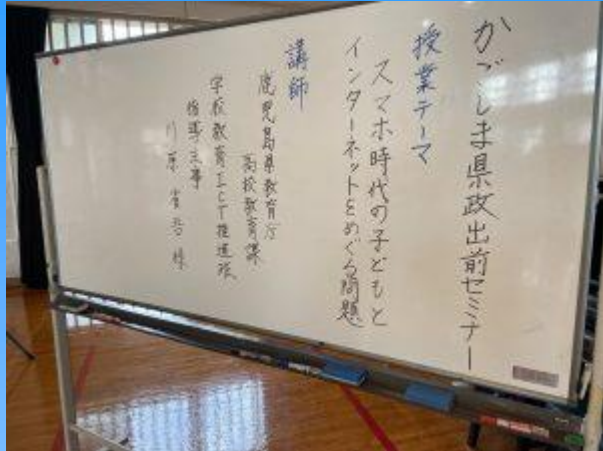 かごしま県政出前セミナー
授業テーマ
スマホ時代の子どもと
インターネットをめぐる問題
講師
鹿児島県教育庁
高校教育課
学校教育ICT推進班
指導主事
川原 様